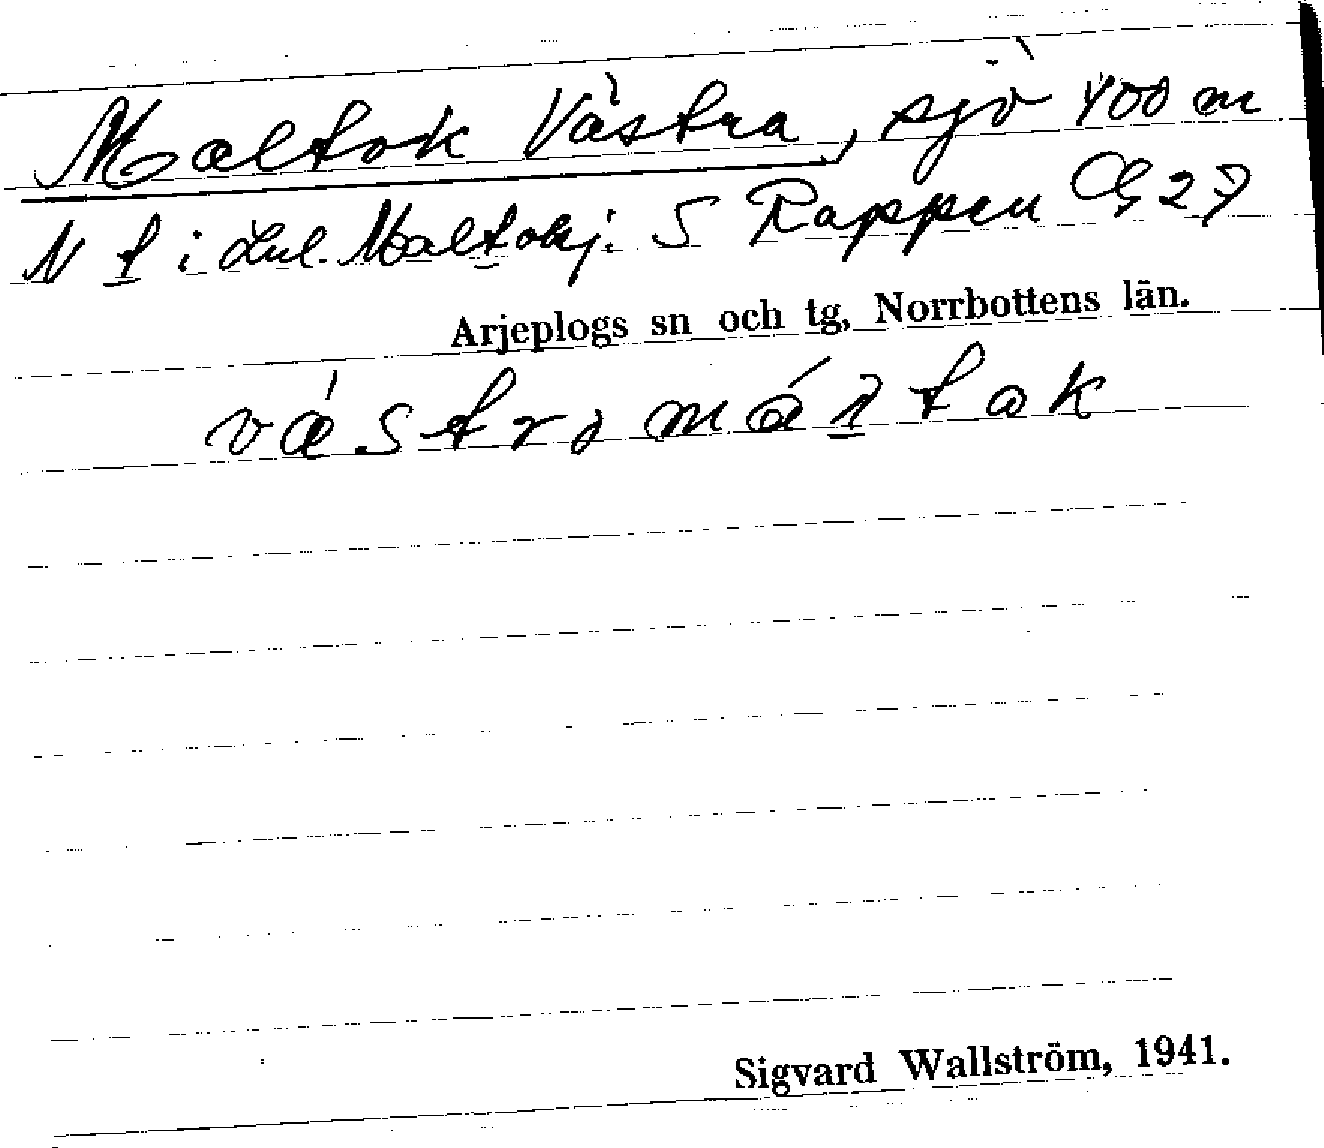 Maltok Västra, sjö 400 m
N t i Lul. Maltokj. S Rappen G 27
Arjeplogs sn och tg, Norrbottens län.
Sigvard Wallström, 1941.